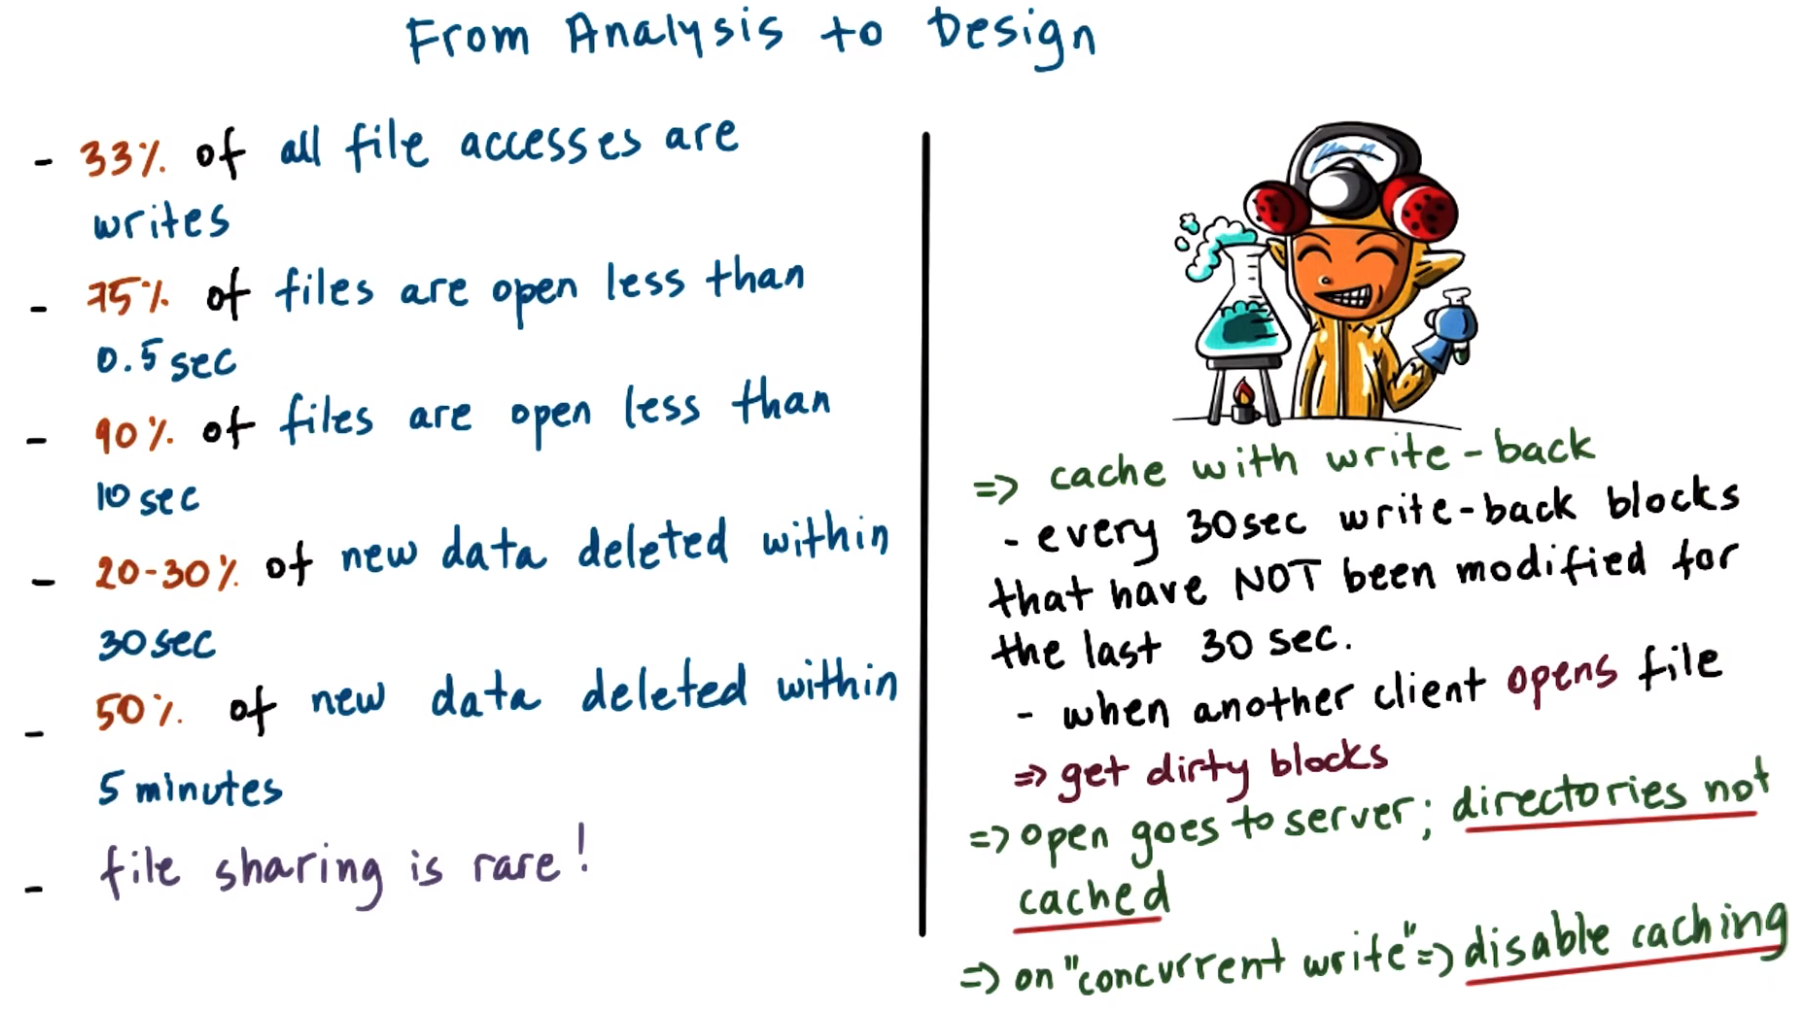 From Analysis to Design
- 33% of all file accesses are
writes
- 75% of files are open less than
0.5 sec
- 90% of files are open less than
10 sec
- 20-30% of new data deleted within
30 sec
- 50% of new data deleted within
5 minutes
- file sharing is rare!
=> cache with write-back
- every 30sec write-back blocks
that have NOT been modified for
the last 30 sec.
- when another client opens file
=> get dirty blocks
=> open goes to server; directories not
cached
=> on "concurrent write" => disable caching